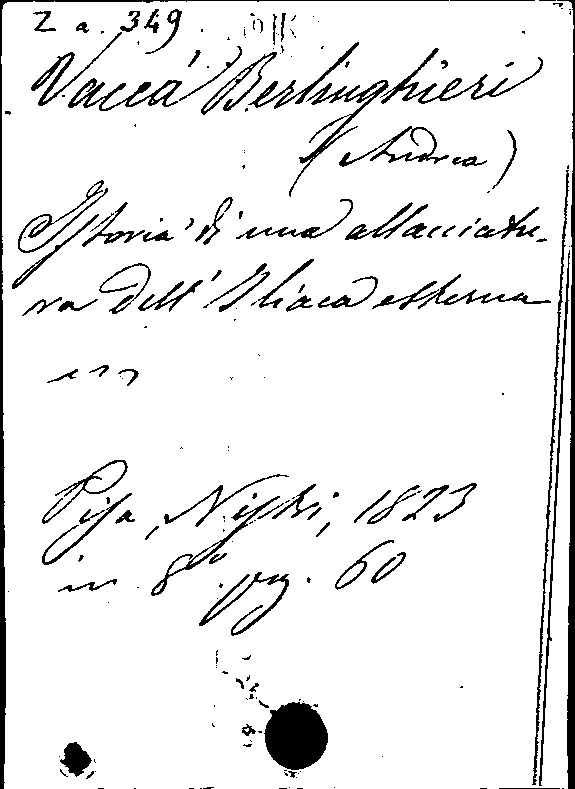 Z a. 349
Vaccà Berlinghieri
(Andrea)
Istoria di una allacciatu-
ra dell' Iliaca esterna
Pisa, Nistri, 1823
in 8º. pag. 60